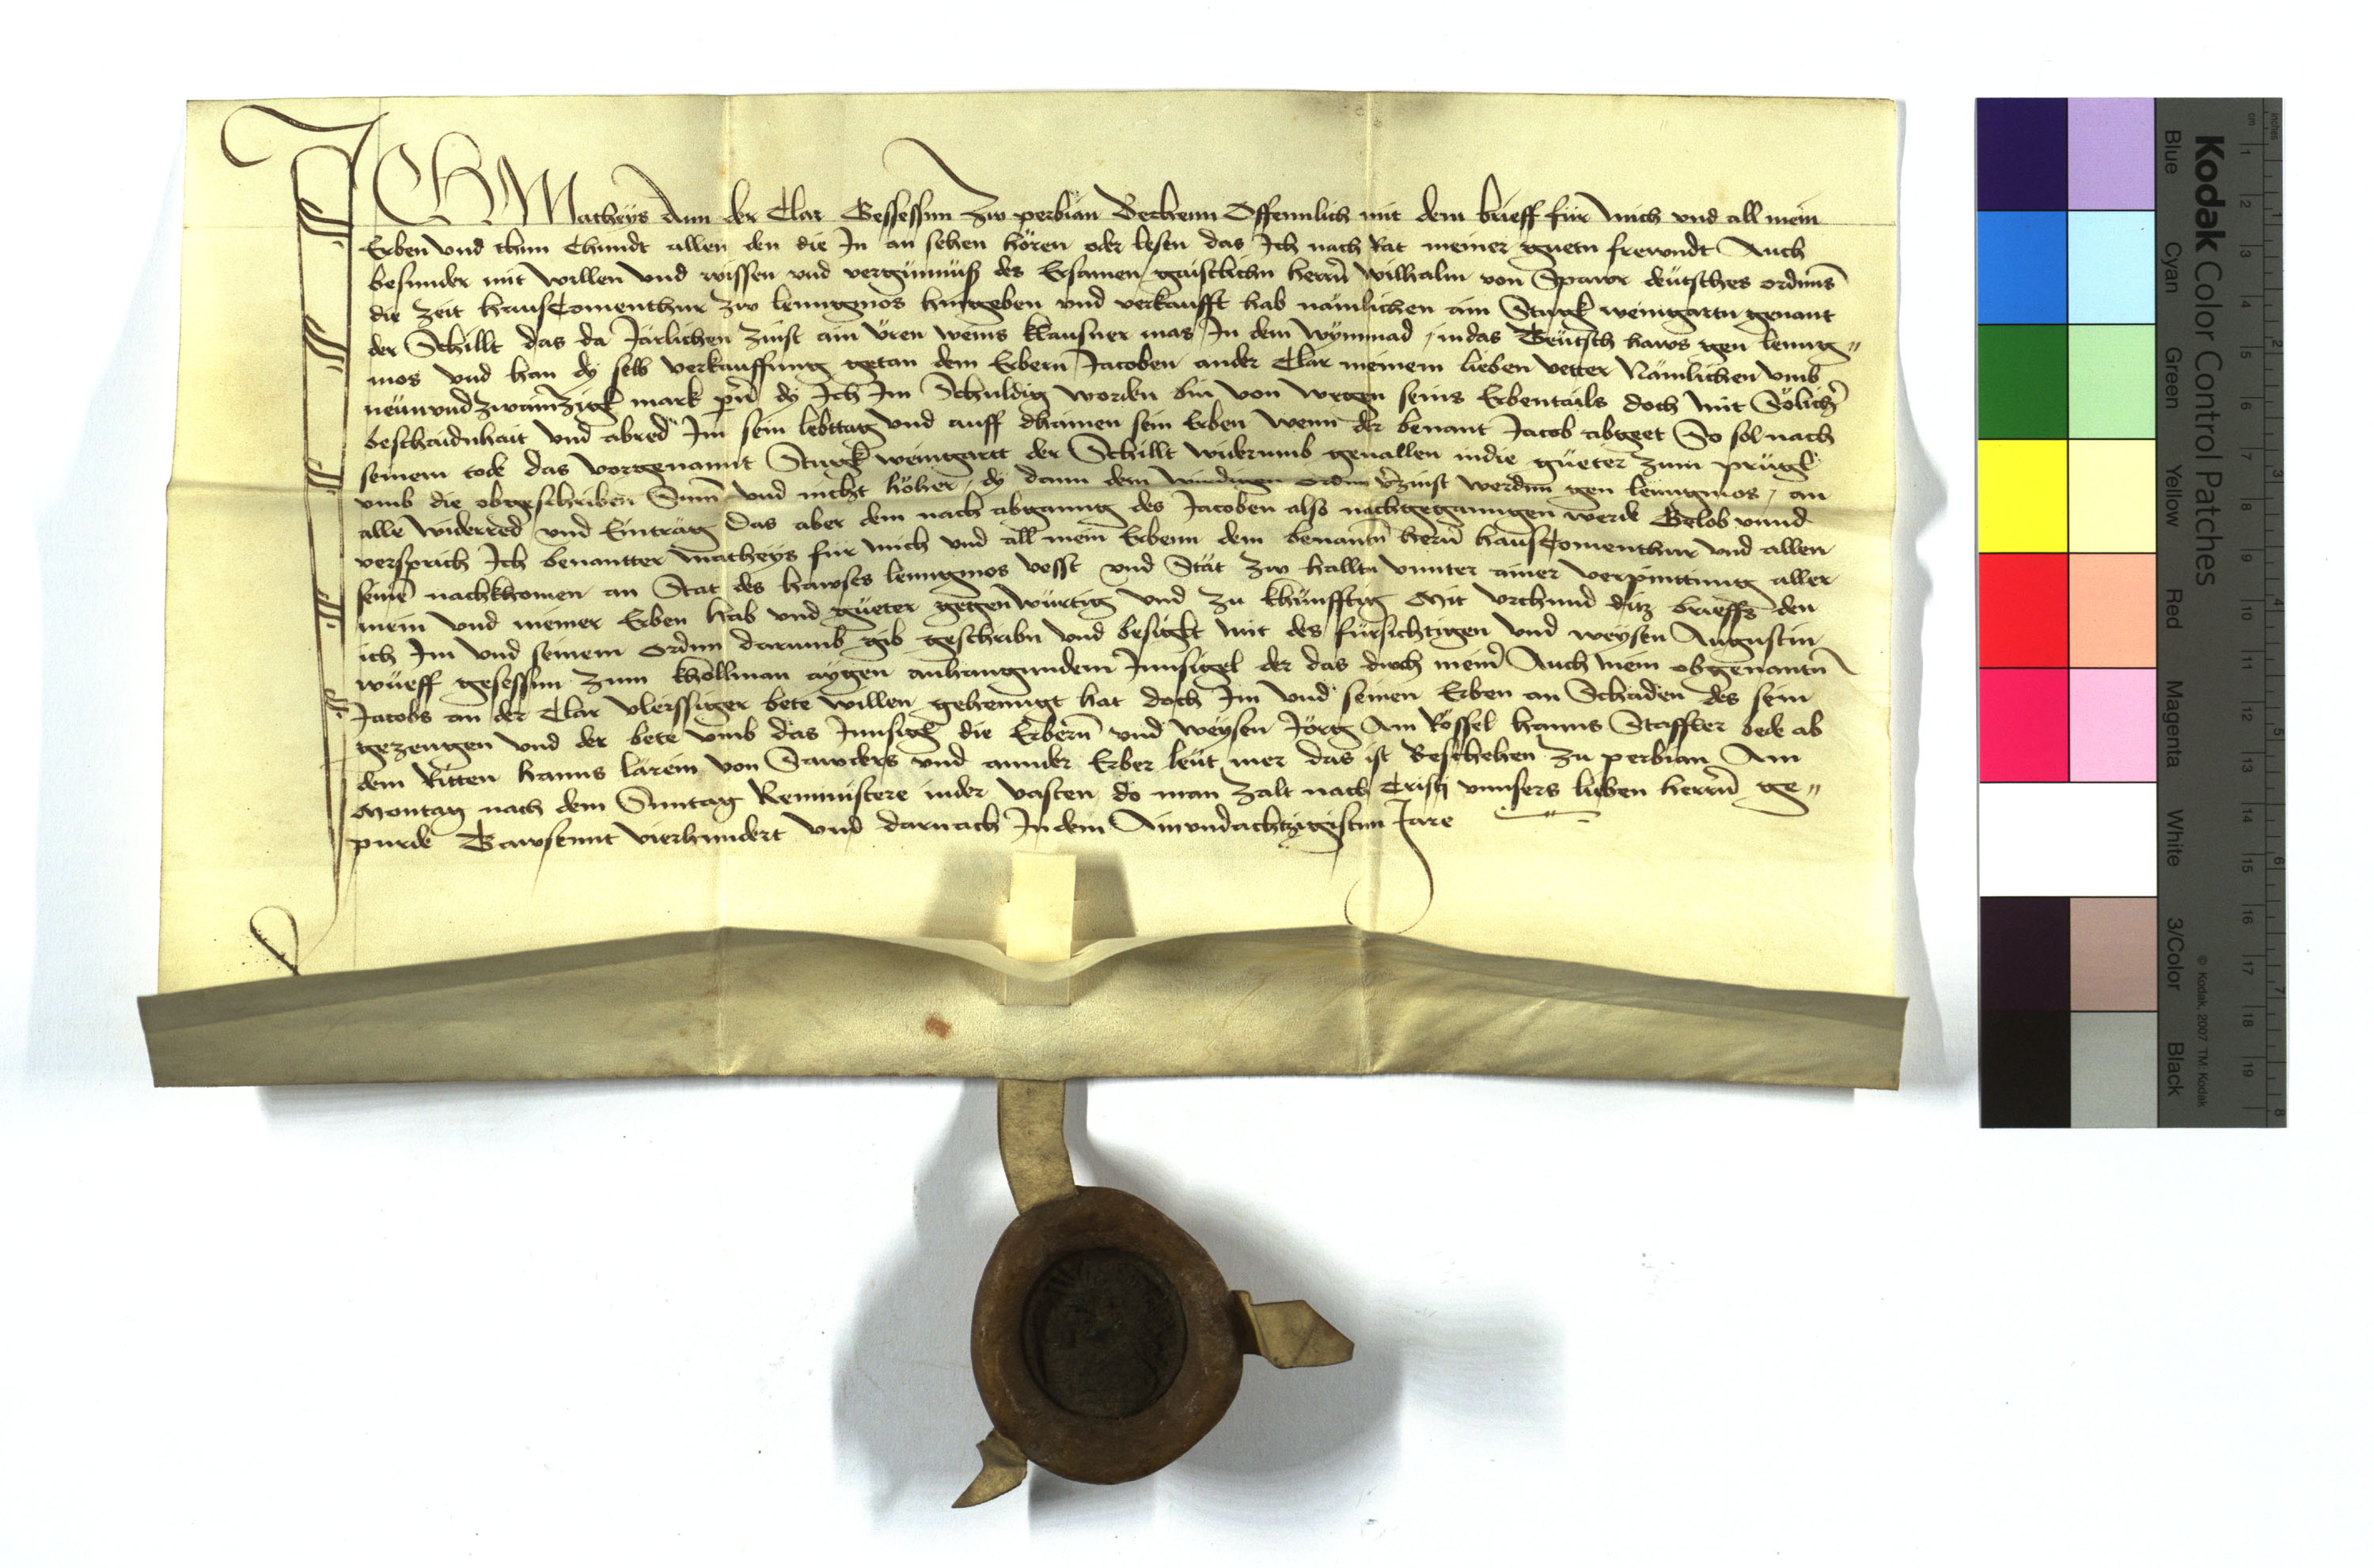 ICH Matheys Ann der Clar Gessessnn zw perbian Bechenn Offennlich mit dem brieff für mich vnd all mein
Erben vnd thun Chundt allen den die In an sehen hören oder lesen das Ich nach Rat meiner guetn frewndt Auch
besunder mit willen vnd wissen vnd vergünnüß des Ersamen gaistlichn herrn wilhalm von Spawr deütsches ordnns
die zeit hausComenthur zw lenngmos hingeben vnd verkaufft hab nämlichen ain Stugk weingartn genant
der Schillt das da Järlichen zinst ain üren weins klausner mas In dem wymmad in das Teutsch haws gen lenng〃
mos vnd han dy selb verkauffung getan dem Erbern Jacoben ander Clar meinem lieben vetter Nämlichen vmb
neünvndzwainzigk mark prn dy Ich Im Schuldig worden bin von wegen seins Erbentails doch mit Sölicher
beschaidnhait vnd abred Im sein lebttag vnd auff dhainen sein Erben wenn der benant Jacob abgeet So sol nach
seinem tode das vorgenannt Stugk weingartt der Schillt widerumb geuallen in die güeter zum prügl
vmb die obgeschriben Sum vnd nicht höher dy dann dem wirdigen ordnn verzinst werdnn gen lenngmos an
alle widerred vnd Einträg Das aber dem nach abganng des Jacoben also nachgeganngen werde Gelob vnnd
versprich Ich benantter matheys für mich vnd all mein Erbenn dem benantn hern hausComenthur vnd allen
seine nachkhomen an Stat des hawses lenngmos vesst vnd Stät zw halltn vnnter ainer verpinttung aller
mein vnd meiner Erben hab vnd güeter gegenwürtig vnd zu khünfftig Mit vrchund ditz brieffs den
ich Im vnd seinem ordnn darumb gib geschribn vnd besiglt mit des fürsichtigen vnd weysen Augustin
wüeff gesessnn zum khollman aygen anhangundem Innsigel der das durch meine Auch mein obgenantn
Jacobs an der Clar vleissiger bete willen gehenngt hat doch Im vnd seinen Erben an Schaden des sein
gezeugen vnd der bete vmb das Innsigl die Erbern vnd weysen Jörg Am Rössel hanns Staffler bede ab
dem Ritten hanns larein von Sawders vnd annder Erber leüt mer das ist Beschehen zu perbian Am
Montag nach dem Sunntag Reministere in der vasten do man zalt nach Cristj vnnsers lieben herrn ge〃
purde Tawsennt vierhundert vnd darnach In dem Ainvndachtzigistnn Jare
Kodak Color Control Patches
Blue Cyan Green Yellow Red Magenta White 3/Color Black
© Kodak, 2007 TM: Kodak
inches 1 2 3 4 5 6 7 8
cm 1 2 3 4 5 6 7 8 9 10 11 12 13 14 15 16 17 18 19